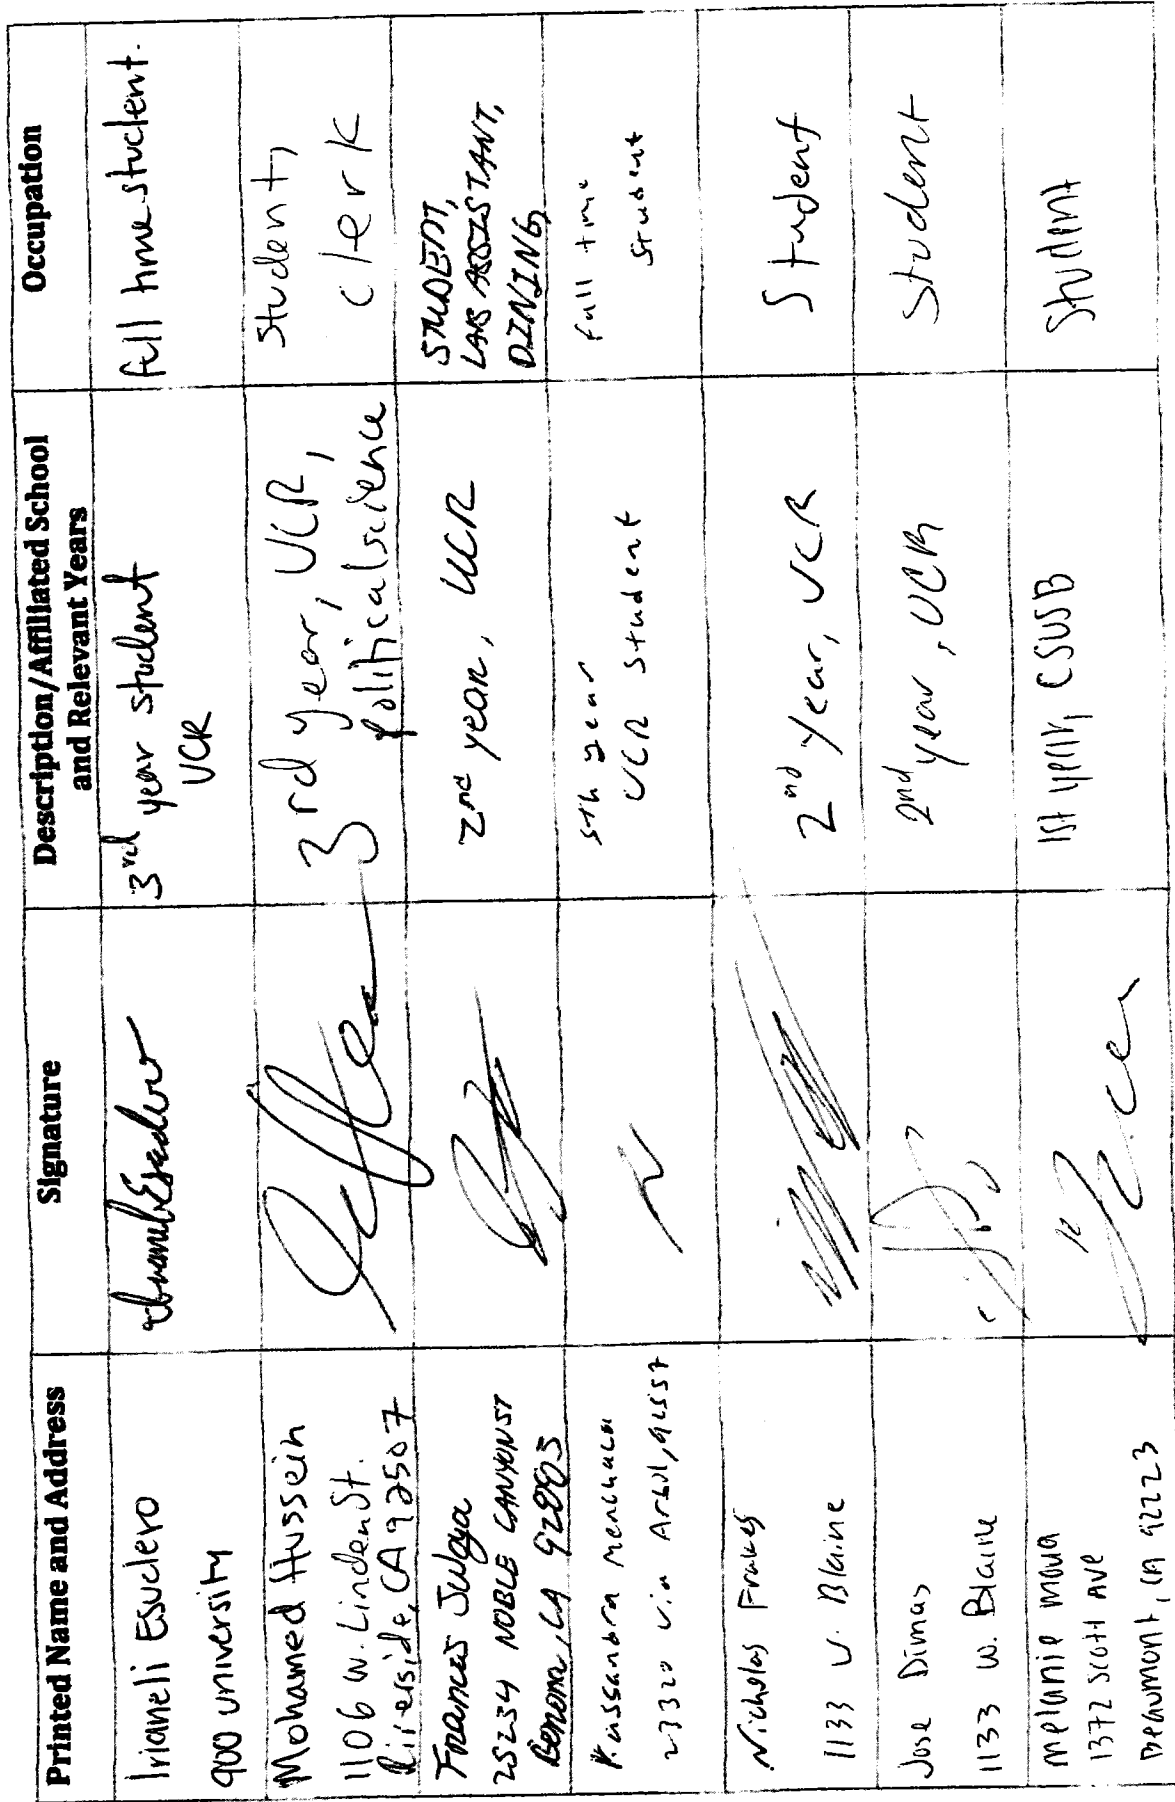 Printed Name and Address
Signature
Description/Affiliated School
and Relevant Years
Occupation
Irianeli Esuclero
900 university
3rd year student
UCR
full time student.
Mohamed Hussein
1106 W. Linden St.
Riverside, CA 92507
3rd year, UCR,
political science
student,
clerk
Frances
25234 NOBLE CANYON ST
CA
2nd year, UCR
STUDENT,
LAB ASSISTANT,
DINING,
Kassandra Menchaca
Via Arbol,
5th year
UCR student
full time
student
Nicholas
1133 W. Blaine
2nd year, UCR
Student
Jose Dimas
1133 W. Blaine
2nd year, UCR
Student
Melanie
1372 Scott Ave
Beaumont, CA 92223
1st year, CSUSB
Student